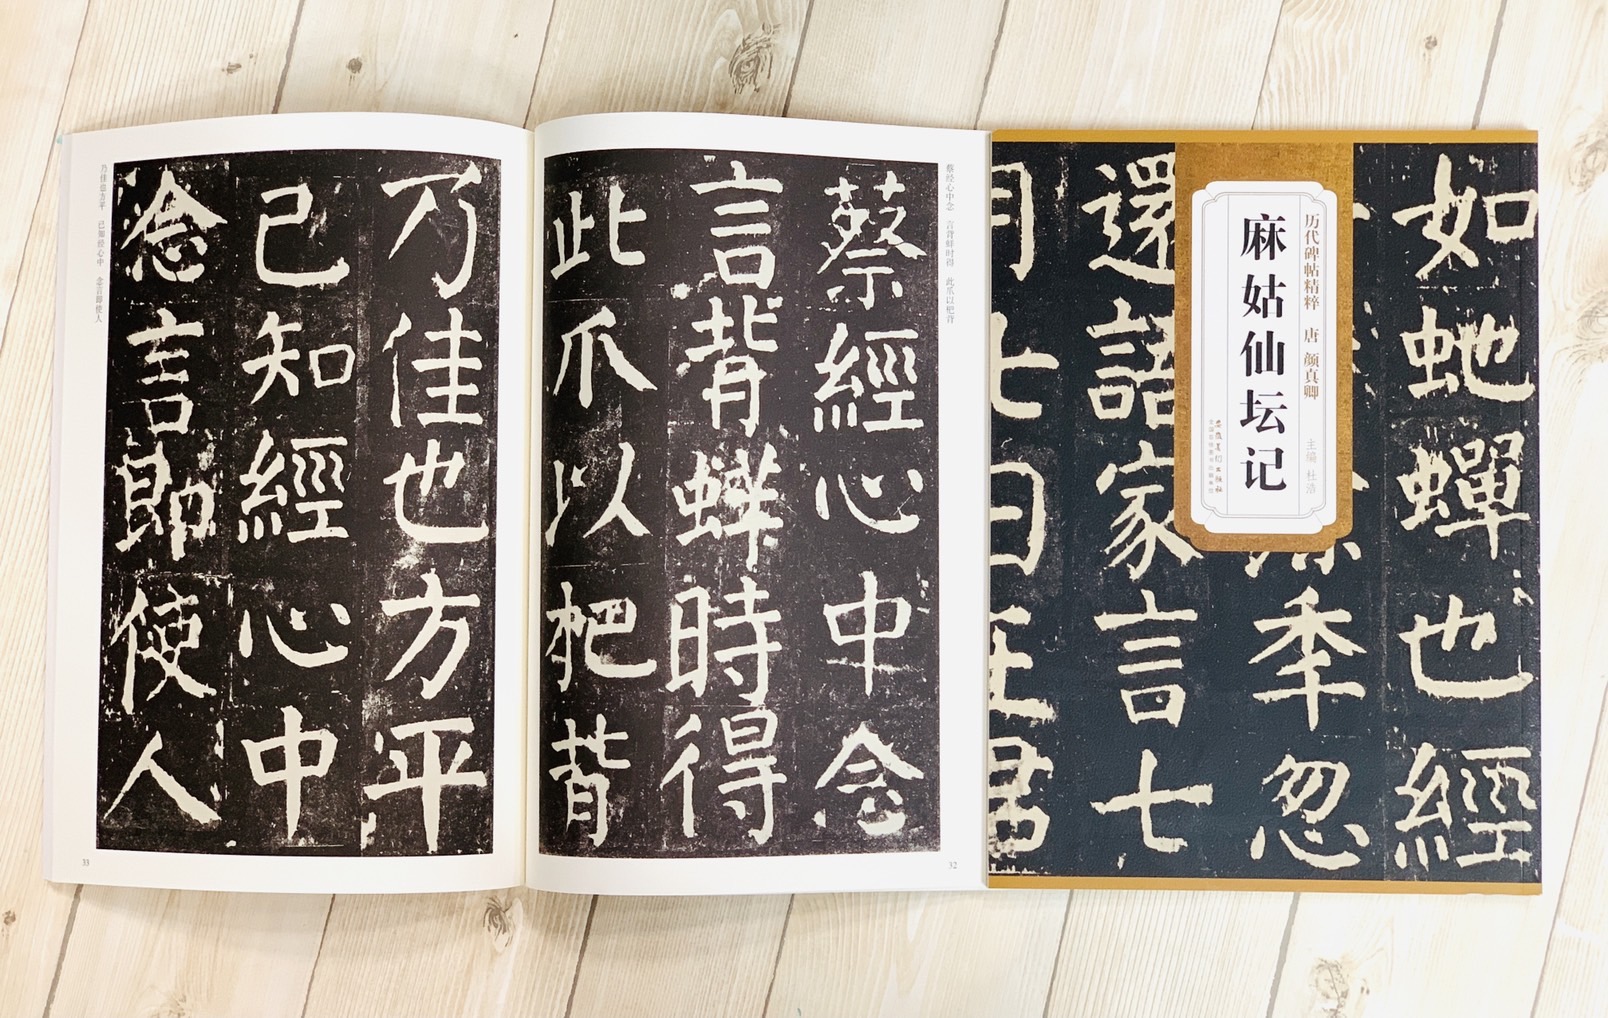 如虵蟬也經
季忽
還語家言七
月七日王君
历代碑帖精粹 唐 颜真卿 主编 杜浩
麻姑仙坛记
安徽美术出版社
全国百佳图书出版单位
蔡经心中念 言背蛘时得 此爪以杷背
蔡經心中念
言背蛘時得
此爪以杷背
32
乃佳也方平
已知經心中
念言即使人
乃佳也方平 已知经心中 念言即使人
33